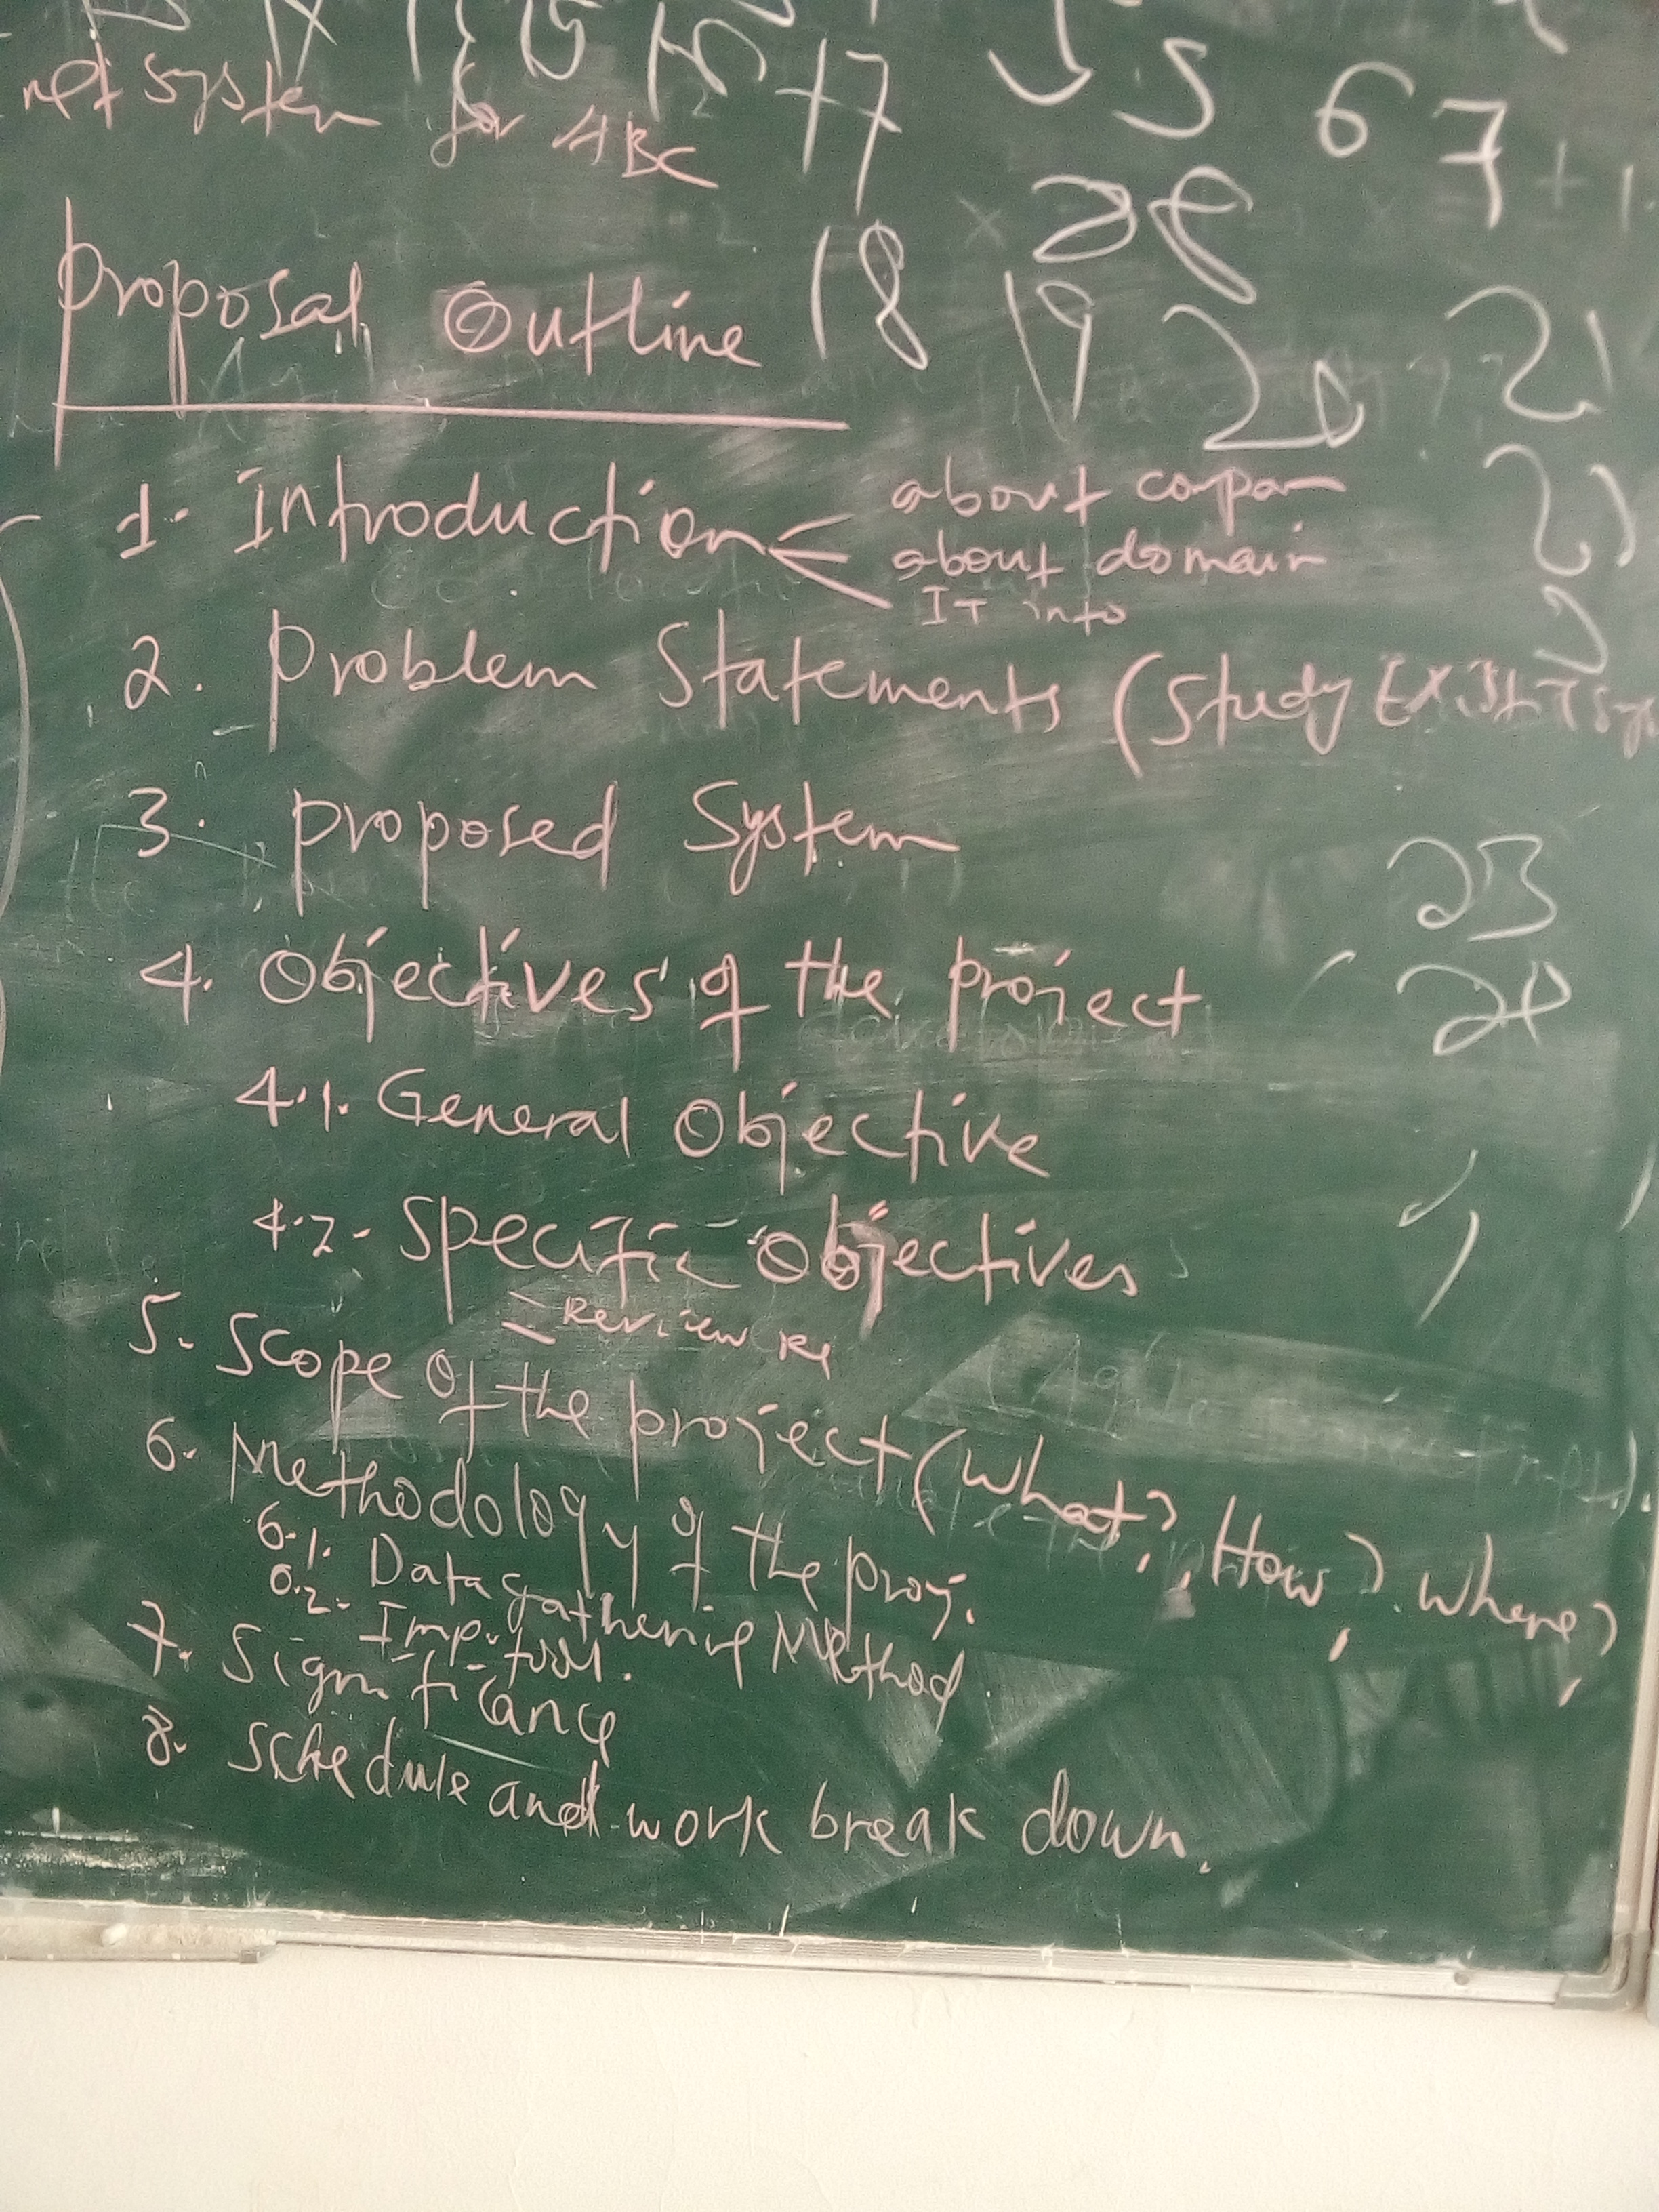 net system for ABC
17
5 6 7
Proposal Outline
18
19 20 21
1. Introduction
about compan
about domain
IT info
2. Problem Statements (Study Exist
3. Proposed System
23
4. Objectives of the project
24
4.1. General Objective
4.2. Specific Objectives
Review
5. Scope of the project (What?, How?, where?
6. Methodology of the proj.
6.1. Data gathering Method
6.2. Imp. tool.
7. Significance
8. Schedule and work break down.